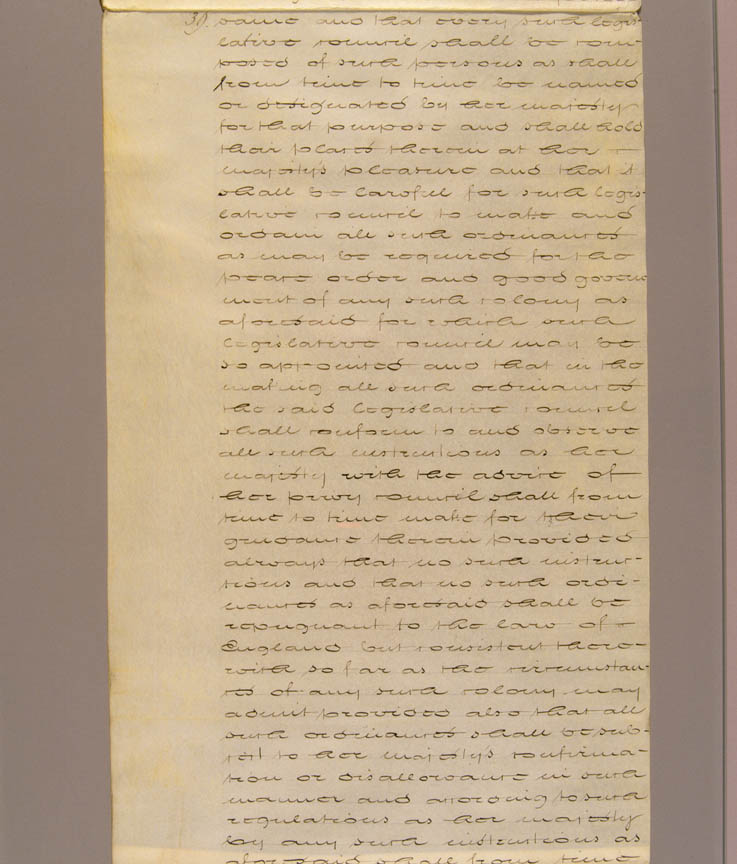 39. same and that every such legis-
lative council shall be com-
posed of such persons as shall
from time to time be named
or designated by her majesty
for that purpose and shall hold
their places therein at her
majesty's pleasure and that it
shall be lawful for such legis-
lative council to make and
ordain all such ordinances
as may be required for the
peace order and good govern
ment of any such colony as
aforesaid for which such
legislative council may be
so appointed and that in the
making all such ordinances
the said legislative council
shall conform to and observe
all such instructions as her
majesty with the advice of
her privy council shall from
time to time make for their
guidance therein provided
always that no such instruc-
tions and that no such ordi-
nances as aforesaid shall be
repugnant to the law of
England but consistent there-
with so far as the circumstan-
ces of any such colony may
admit provided also that all
such ordinances shall be sub-
ject to her majesty's confirma-
tion or disallowance in such
manner and according to such
regulations as her majesty
by any such instructions as
aforesaid shall from time